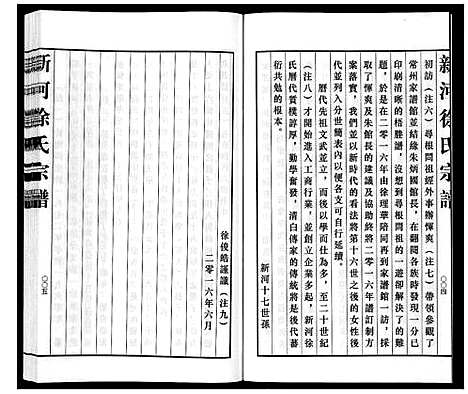 新河徐氏宗譜
〇〇四
初訪（注六）尋根問祖經外事辦惲爽（注七）帶領參觀了
常州家譜館並結緣朱炳國館長，在翻閱各族時發現一分已
印刷清晰的梧塍譜，沒想到尋根問祖的一遊卻解決了的難
題，於是在二零一六年由徐理華陪同再到家譜館一訪，採
取了惲爽及朱館長的建議及協助終將二零一六年譜訂制方
案落實，我們並以新時代的看法將第十六世之後的女性後
代並列入分世簡表內以便各支可自行延續。
歷代先祖文武並立，而後以學而仕為多，至二十世紀
（注八）才開始進入工商行業，並創立企業多起，新河徐
氏曆代質樸諄厚，勤學奮發，清白傳家的傳統將是後代蕃
衍共勉的根本。
新河十七世孫
徐俊皓謹識（注九）
二零一六年六月
新河徐氏宗譜
〇〇五